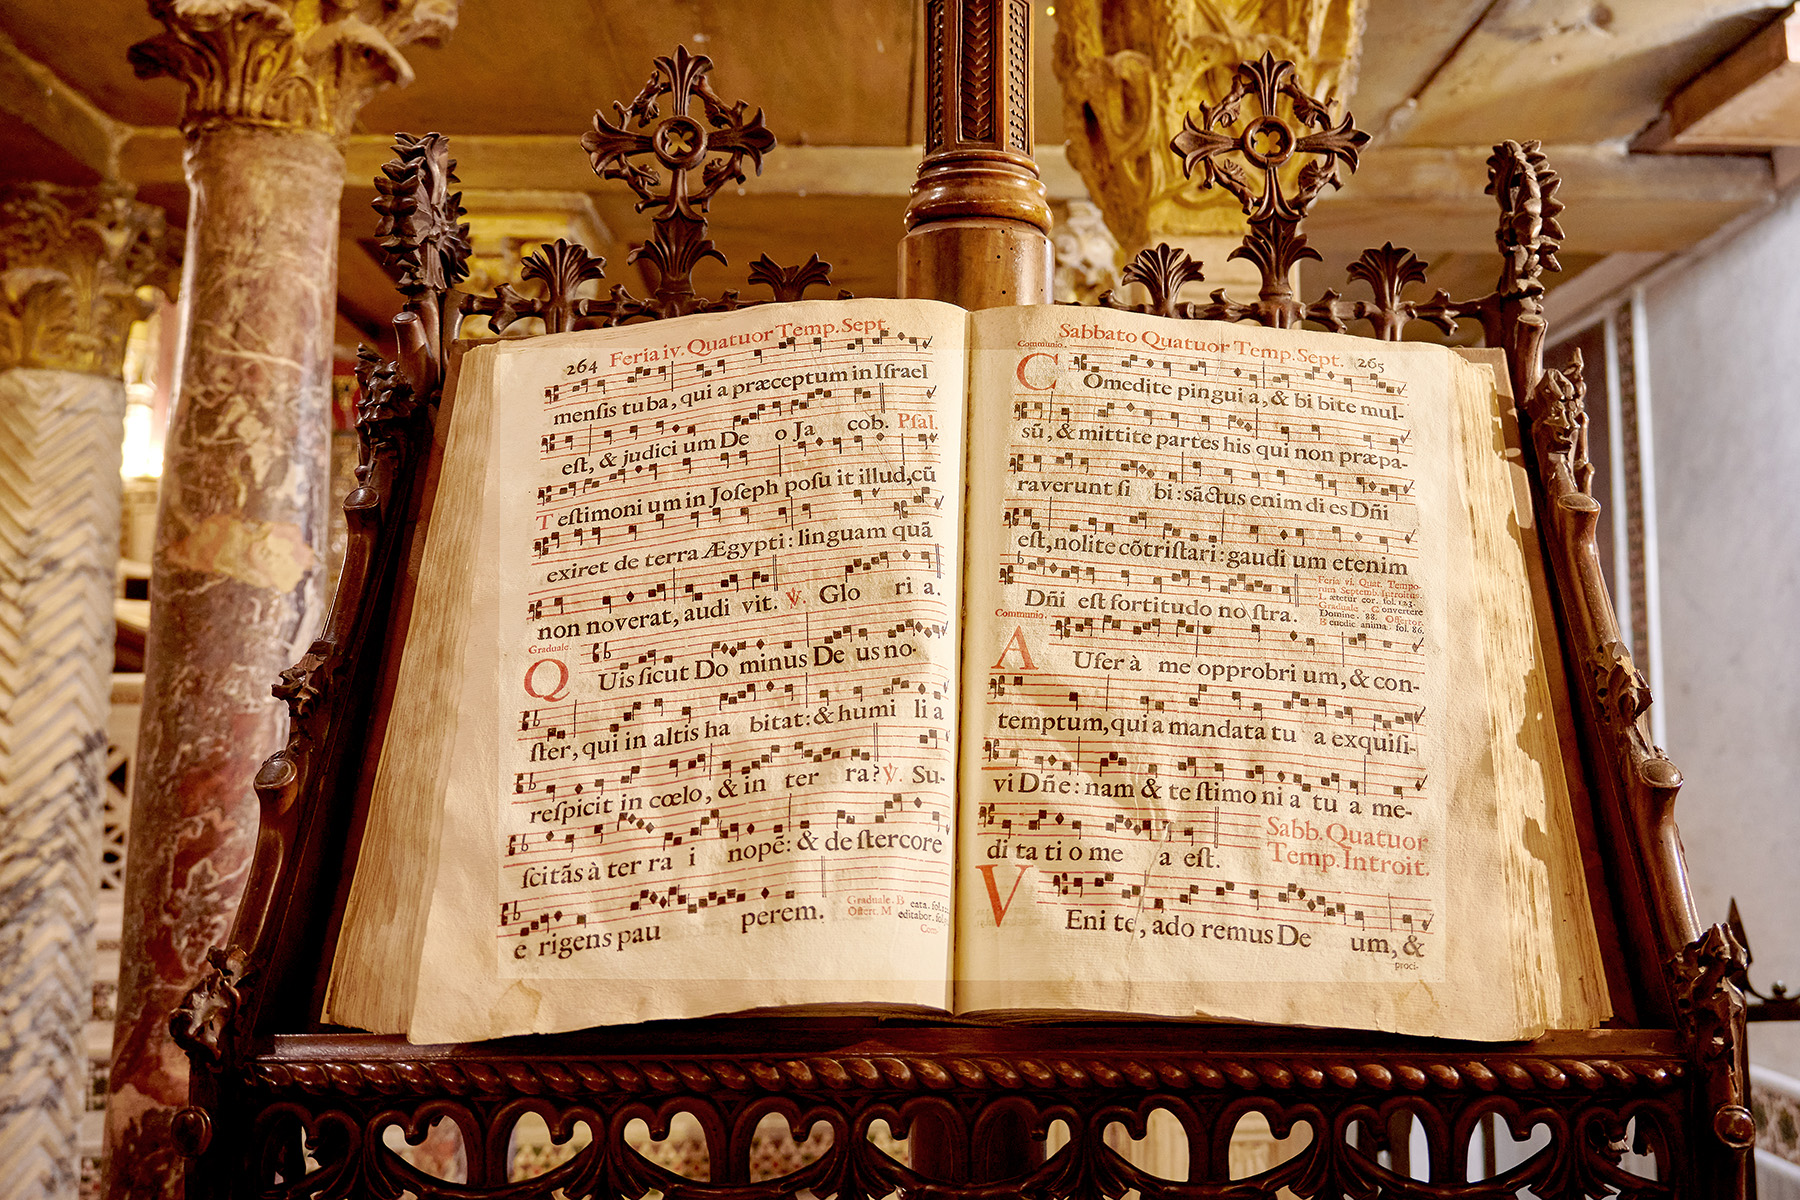 264 Feria iv. Quatuor Temp. Sept.
mensis tuba, qui a præceptum in Israel
est, & judici um De o Ja cob. Psal.
Testimoni um in Joseph posu it illud, cũ
exiret de terra Ægypti: linguam quã
non noverat, audi vit. ℣. Glo ri a.
Graduale.
QUis sicut Do minus De us no-
ster, qui in altis ha bitat: & humi li a
respicit in cœlo, & in ter ra? ℣. Su-
scitãs à ter ra i nopẽ: & de stercore
e rigens pau perem.
Graduale. B eata. fol.
Offert. M editabor. fol.
Com-
Sabbato Quatuor Temp. Sept. 265
Communio.
COmedite pingui a, & bi bite mul-
sũ, & mittite partes his qui non præpa-
raverunt si bi: sãctus enim di es Dñi
est, nolite cõtristari: gaudi um etenim
Dñi est fortitudo no stra.
Feria vi. Quat. Tempo-
rum Septemb. Introitus.
L ætetur cor. fol. 123.
Graduale. C onvertere
Domine. 88. Offertor.
B enedic anima. fol. 86.
Communio.
AUfer à me opprobri um, & con-
temptum, qui a mandata tu a exquisi-
vi Dñe: nam & te stimo ni a tu a me-
di ta ti o me a est.
Sabb. Quatuor
Temp. Introit.
VEni te, ado remus De um, &
proci-